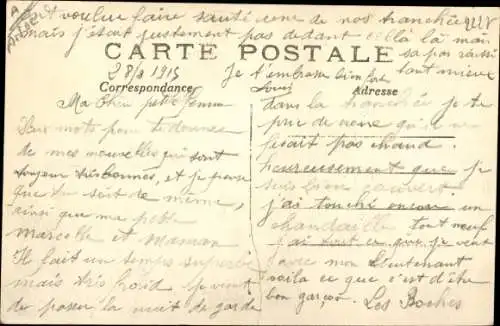 voulu faire sauté une de nos tranchées
mais j'etait justement pas dedant cella là mais
CARTE POSTALE
sa pas réussi
tout mieux
28/2 1915
Je t'embrasse bien fort
Louis
Correspondance
Adresse
Ma cher petite femme
Deux mots pour te donner
de mes nouvelles qui sont
toujour très bonnes, et je pense
que tu soit de même,
ainsi que ma petite
marcelle et maman
Il fait un temps superbe
mais très froid je vient
de passer la nuit de garde
dans la tranchée je te
pris de croire qu'il ne
fesait pas chaud.
heureusement que je
suis bien couvert
j'ai touché encore un
chandaille tout neuf
j'ai tout ce que je veut
avec mon Lieutenant
voila ce que s'est d'être
bon garçon. Les Boches